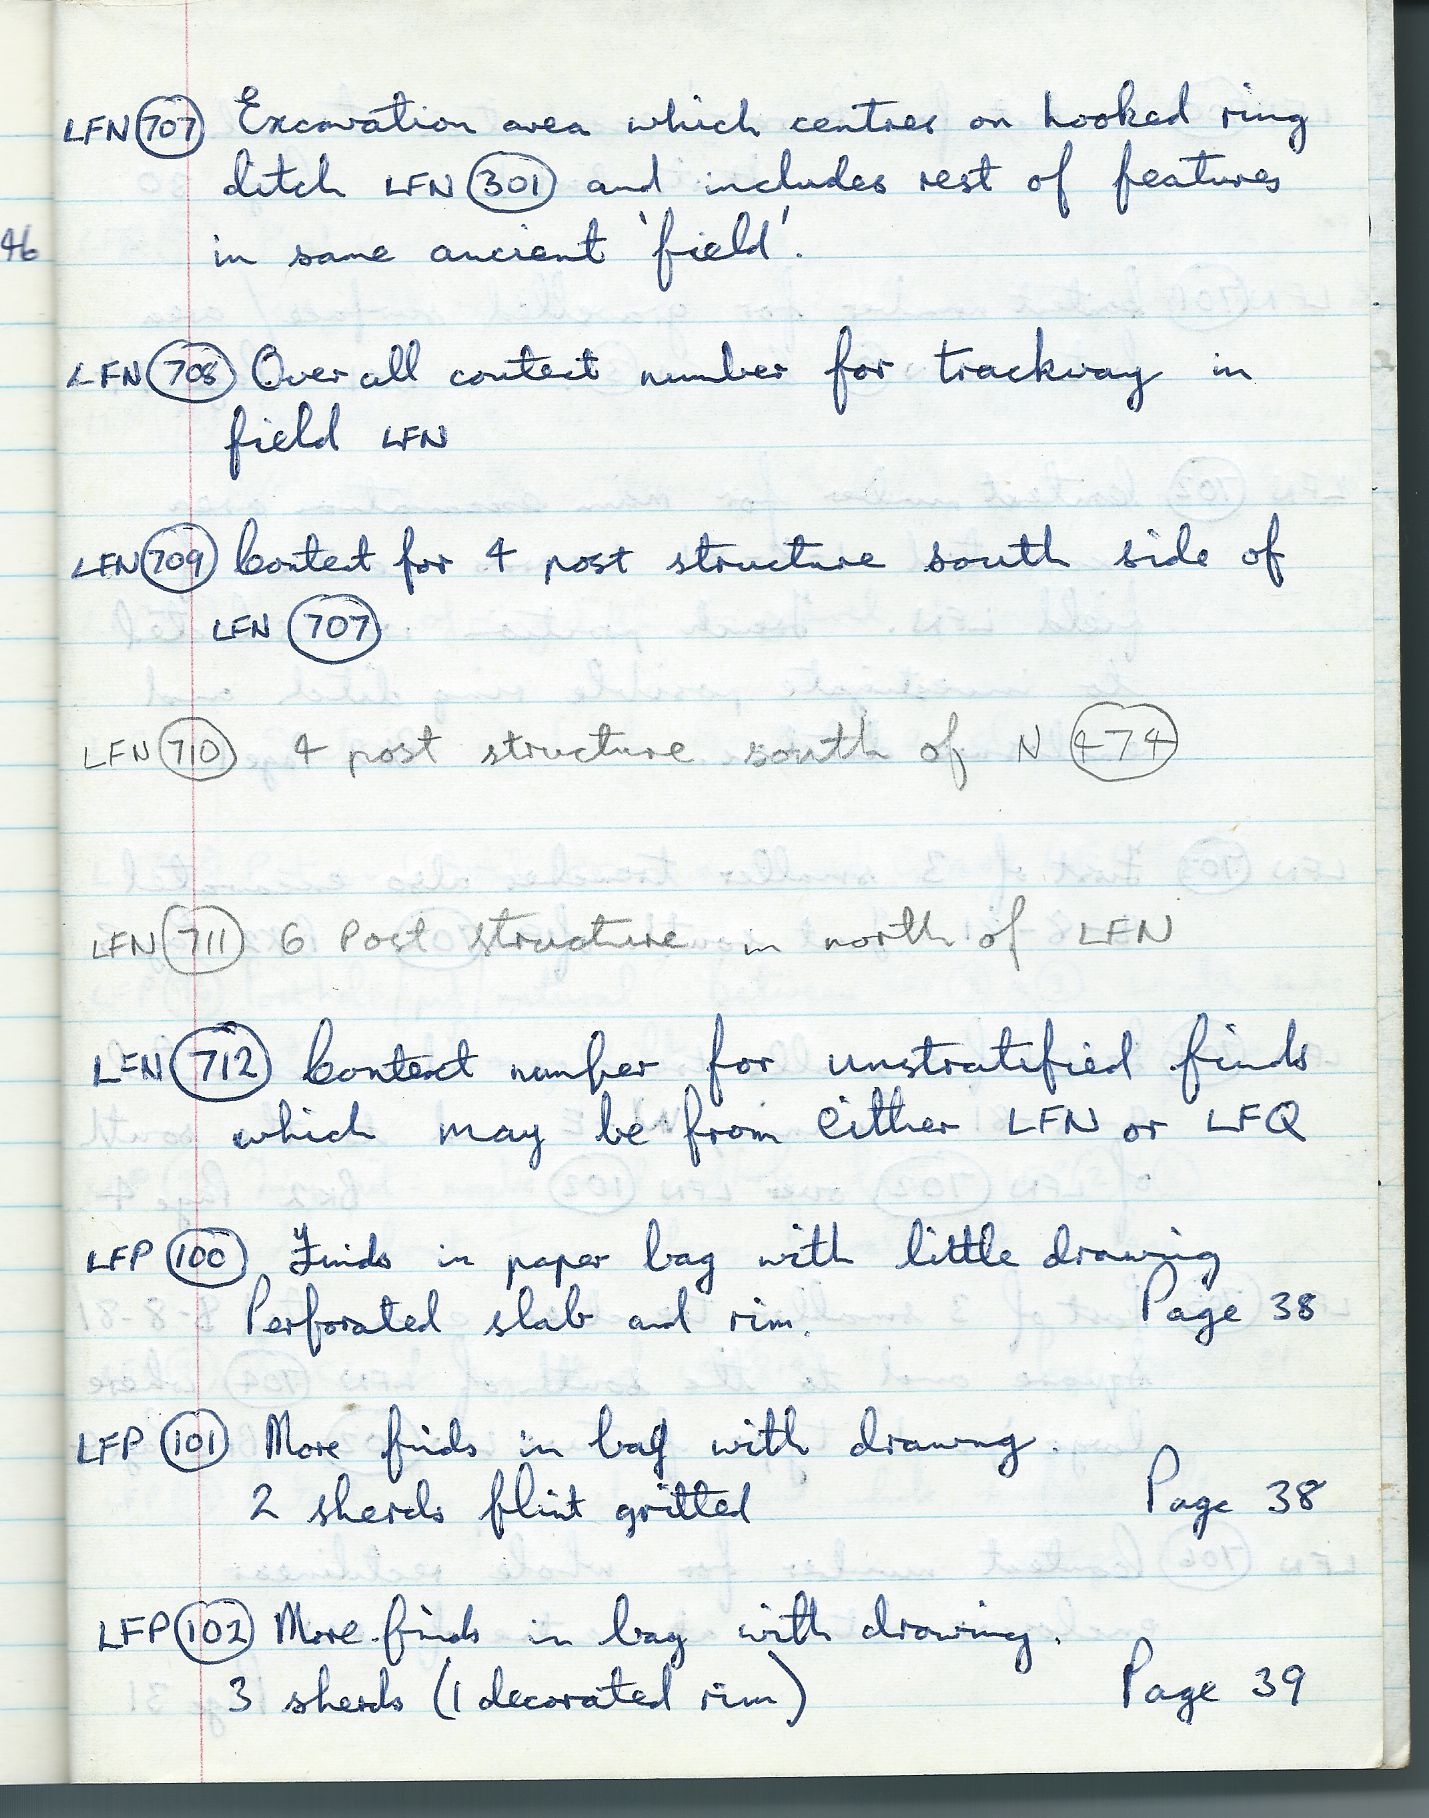 LFN 707 Excavation area which centres on hooked ring
ditch LFN 301 and includes rest of features
in same ancient 'field'.
46
LFN 708 Overall context number for trackway in
field LFN
LFN 709 Context for 4 post structure south side of
LFN 707
LFN 710 4 post structure south of N 474
LFN 711 6 Post structure in north of LFN
LFN 712 Context number for unstratified finds
which may be from either LFN or LFQ
LFP 100 Finds in paper bag with little drawing
Perforated slab and rim. Page 38
LFP 101 More finds in bag with drawng.
2 sherds flint gritted Page 38
LFP 102 More finds in bag with drawing.
3 sherds (1 decorated rim) Page 39